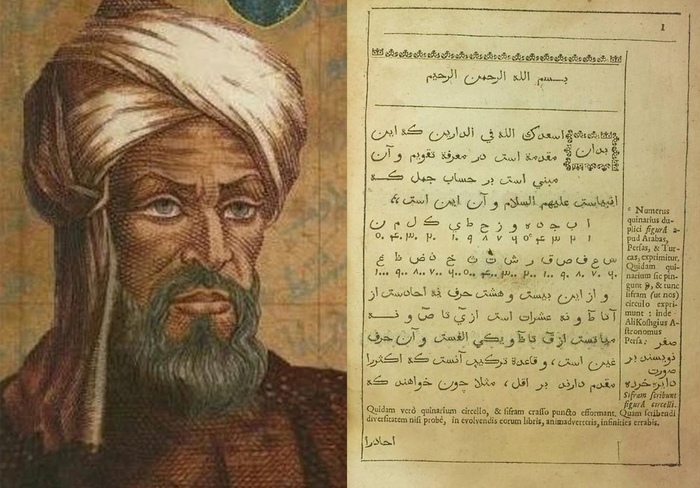 1
بسم الله الرحمن الرحيم
بدان اسعدك الله في الدارين كه اين
مقدمة است در معرفة تقويم و آن
مبني است بر حساب جمل كه
است عليهم السلام و آن اين است
ا ب ج د ه و ز ح ط ي ك ل م ن
١ ٢ ٣ ٤ ٥ ٦ ٧ ٨ ٩ ١٠ ٢٠ ٣٠ ٤٠ ٥٠
س ع ف ص ق ر ش ت ث خ ذ ض ظ غ
٦٠ ٧٠ ٨٠ ٩٠ ١٠٠ ٢٠٠ ٣٠٠ ٤٠٠ ٥٠٠ ٦٠٠ ٧٠٠ ٨٠٠ ٩٠٠ ١٠٠٠
و از اين بيست و هشت حرف نه احادست از
آ تا ط و نه عشرات است از ي تا ص و نه
مياتست از ق تا ظ و يكي الفست و آن حرف
غين است و قاعدة تركيب آنست كه اكثررا
مقدم دارند بر اقل مثلا چون خواهند كه
Numerus
quinarius du-
plici figurâ a-
pud Arabas,
Persas, & Tur-
cas, exprimitur.
Quidam qui-
narium sic pin-
gunt & tunc
sifram (ut nos)
circulo expri-
munt: Inde
Ali Koshgius A-
stronomus
Persa:
صفر
نويسند بر
صورت
دايره خرده
Sifram scribunt
figurâ circelli.
Quidam verò quinarium circello, & sifram crasso puncto efformant. Quam scribendi
diversitatem nisi probè, in evolvendis eorum libris, animadverteris, infinities errabis.
احادرا